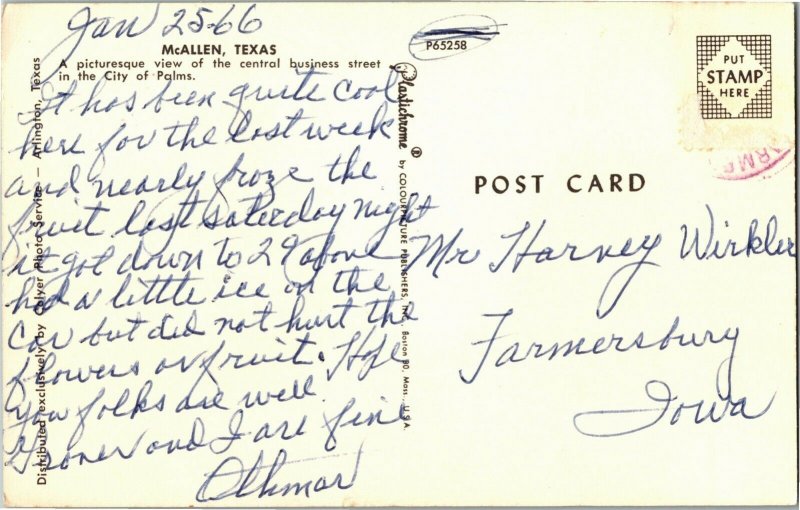 Jan 25-66
McALLEN, TEXAS
A picturesque view of the central business street
in the City of Palms.
It has been quite cool
here for the last week
and nearly froze the
fruit last saterday night
it got down to 29 above
had a little ice on the
car but did not hurt the
flowers or fruit. Hope
you folks are well
and I are fine
Othmar
Distributed exclusively by Colyer Photo Service — Arlington, Texas
P65258
Plastichrome ® by COLOURPICTURE PUBLISHERS, INC., Boston 30, Mass., U.S.A.
PUT
STAMP
HERE
POST CARD
Mr Harvey Winkler
Farmersburg
Iowa